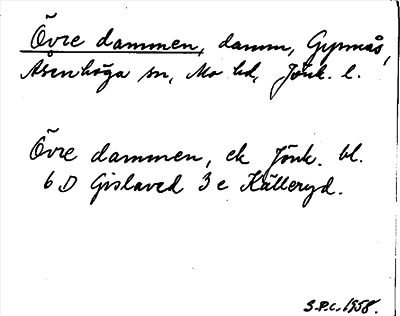 Övre dammen, damm, Gypmås,
Åsenhöga sn, Mo hd, Jönk. l.
Övre dammen, ek Jönk. bl.
6 D Gislaved 3 e Källeryd.
S.P.C. 1958.